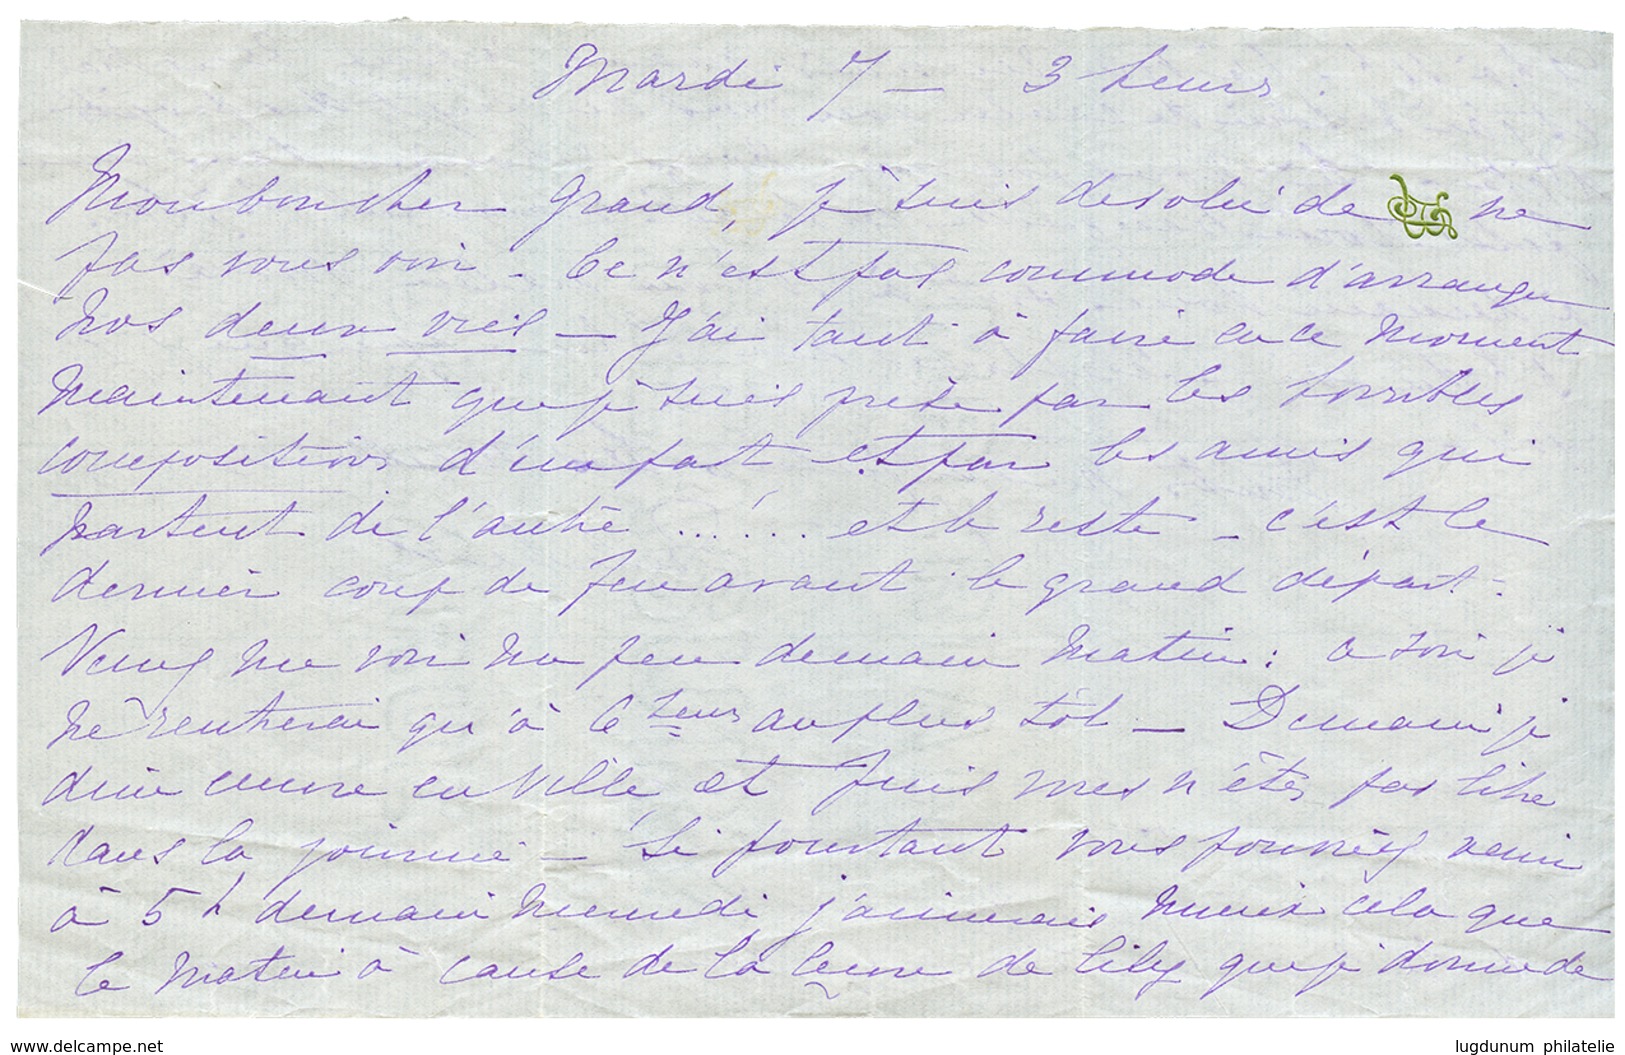 Mardi 7 — 3 heures.
Mon bon cher grand, je suis désolée de ne
pas vous voir — Ce n'est pas commode d'arranger
nos deux vies — J'ai tant à faire en ce moment
maintenant que je suis prise par les horribles
compositions d'une part et par les amis qui
partent de l'autre ...... et le reste — c'est le
dernier coup de feu avant le grand départ.
Venez me voir un peu demain matin : ce soir je
ne rentrerai qu'à 6 heures au plus tôt — Demain je
dine encore en ville, et puis vous n'êtes pas libre
dans la journée — Si pourtant vous pouviez venir
à 5 h demain mercredi j'aimerais mieux cela que
le matin à cause de la leçon de Lily que je donne de
www.delcampe.net
lugdunum philatelie